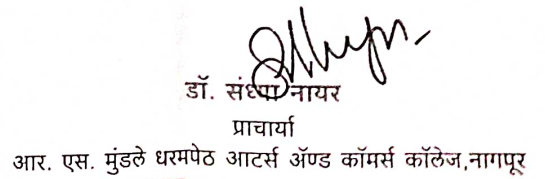 डॉ. संध्या नायर
प्राचार्या
आर. एस. मुंडले धरमपेठ आटर्स ॲण्ड कॉमर्स कॉलेज,नागपूर